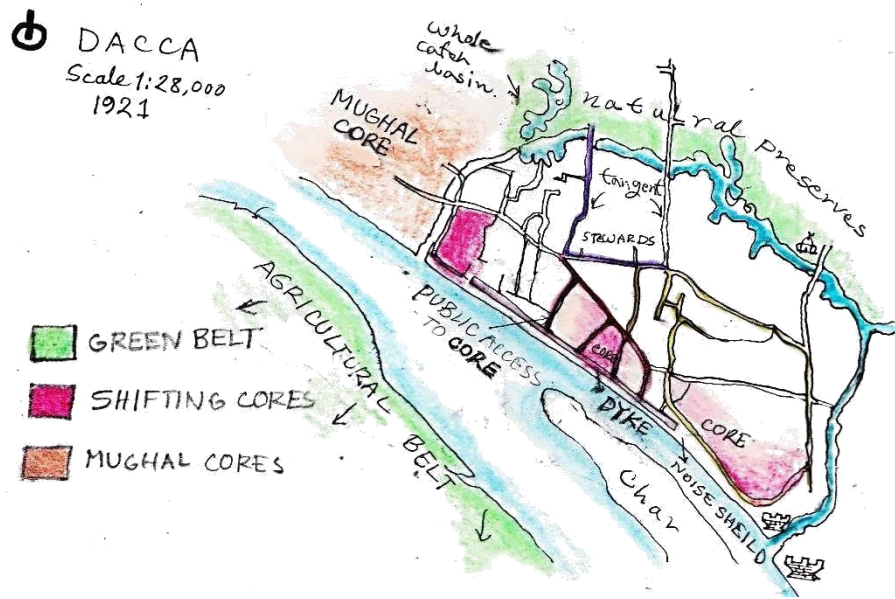 DACCA
Scale 1:28,000
1921
Whole
catch
basin.
natural preserves
MUGHAL
CORE
tangent
STEWARDS
PUBLIC ACCESS
TO CORE
CORE
DYKE
CORE
NOISE SHEILD
Char
AGRICULTURAL
BELT
GREEN BELT
SHIFTING CORES
MUGHAL CORES